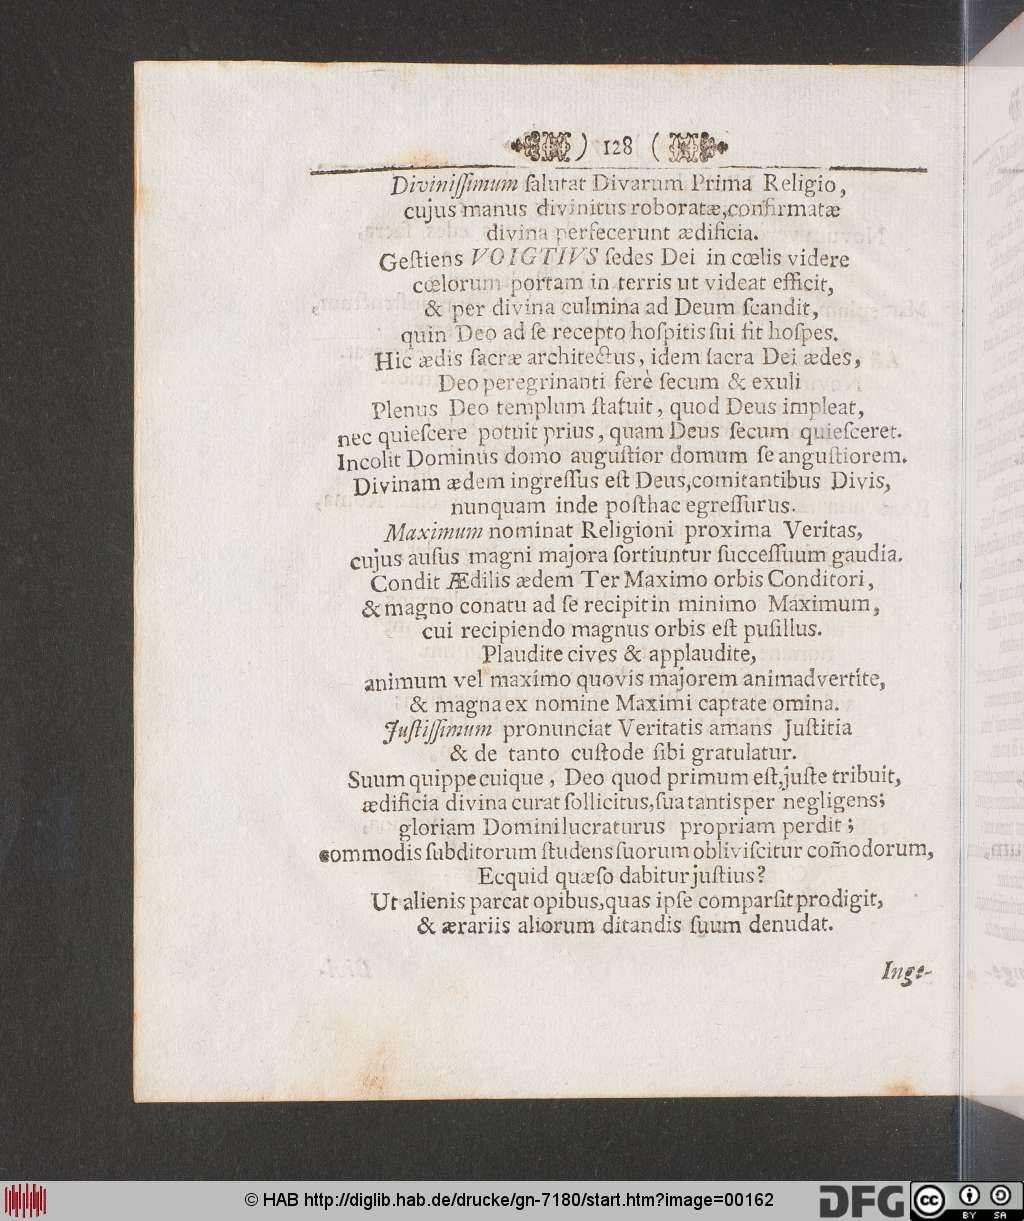 ) 128 (
Diviniſſimum ſalutat Divarum Prima Religio,
cujus manus divinitus roboratæ, confirmatæ
divina perfecerunt ædificia.
Geſtiens VOIGTIVS ſedes Dei in cœlis videre
cœlorum portam in terris ut videat efficit,
& per divina culmina ad Deum ſcandit,
quin Deo ad ſe recepto hoſpitis ſui fit hoſpes.
Hic ædis ſacræ architectus, idem ſacra Dei ædes,
Deo peregrinanti ferè ſecum & exuli
Plenus Deo templum ſtatuit, quod Deus impleat,
nec quieſcere potuit prius, quam Deus ſecum quieſceret.
Incolit Dominus domo auguſtior domum ſe anguſtiorem.
Divinam ædem ingreſſus eſt Deus, comitantibus Divis,
nunquam inde poſthac egreſſurus.
Maximum nominat Religioni proxima Veritas,
cujus auſus magni majora ſortiuntur ſucceſſuum gaudia.
Condit Ædilis ædem Ter Maximo orbis Conditori,
& magno conatu ad ſe recipit in minimo Maximum,
cui recipiendo magnus orbis eſt puſillus.
Plaudite cives & applaudite,
animum vel maximo quovis majorem animadvertite,
& magna ex nomine Maximi captate omina.
Juſtiſſimum pronunciat Veritatis amans Juſtitia
& de tanto cuſtode ſibi gratulatur.
Suum quippe cuique, Deo quod primum eſt, juſte tribuit,
ædificia divina curat ſollicitus, ſua tantisper negligens;
gloriam Domini lucraturus propriam perdit;
commodis ſubditorum ſtudens ſuorum obliviſcitur com̃odorum,
Ecquid quæſo dabitur juſtius?
Ut alienis parcat opibus, quas ipſe comparſit prodigit,
& ærariis aliorum ditandis ſuum denudat.
Inge-
© HAB http://diglib.hab.de/drucke/gn-7180/start.htm?image=00162
DFG
cc BY SA